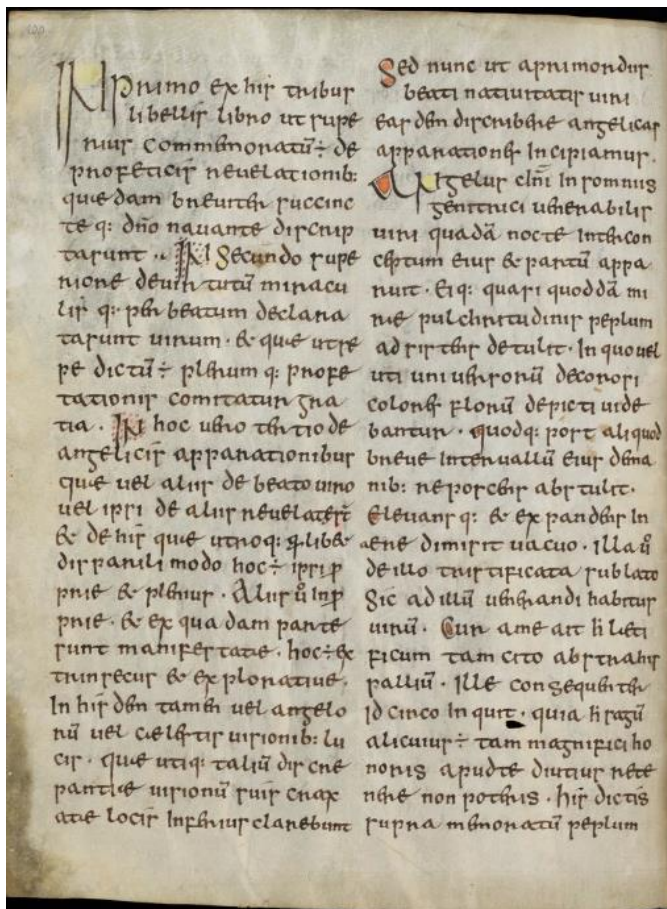 IN primo ex his tribus
libellis libro ut supe
rius commemoratū ÷ de
profeticis reuelationib:
quædam breuiter succinc
te q: dño nauante discrip
ta sunt ∴ IN Secundo supe
riore de uirtutū miracu
lis q: per beatum declara
ta sunt uirum · & quæ ut se
pe dictū ÷ plerum q: profe
tationis comitatur gra
tia · IN hoc uero tertio de
angelicis apparationibus
quæ uel aliis de beato uiro
uel ipsi de aliis reuelate st̄
& de his quæ utroq: ꝓ lib&
disparili modo hoc ÷ ipsi ꝓ
prie & plenius · Aliis ů Inꝓ
prie · & ex quadam parte
sunt manifestatæ · hoc ÷ ex
trinsecus & explorative ·
In hisdem tamen uel angelo
rū uel cælestis uisionib: lu
cis · quæ utiq: taliū discre
pantiæ uisionū suis carax
atæ locis Inferius clarebunt
Sed nunc ut a primordiis
beati natiuitatis uiri
easdem discribere angelicas
apparationes Incipiamus ·
Angelus dñi In somniis
genitrici uenerabilis
uiri quadā nocte Inter con
ceptum eius & partū appa
ruit · Eiq: quasi quoddā mi
ræ pulchritudinis peplum
adsistens detulit · In quo uel
uti uniuersorū decorosi
colores florū depicti uide
bantur · quodq: post aliquod
breue Interuallū eius de ma
nib: reposcens abstulit ·
Eleuans q: & expandens In
aere dimisit uacuo · Illa ů
de illo tristificata sublato
Sic ad illū uenerandi habitus
uirū · Cur a me ait hleti
ficum tam cito abstrahis
palliū · Ille consequenter
Id circo Inquit · quia h sagū
alicuius ÷ tam magnifici ho
noris apud te diutius rete
nere non poteris · his dictis
supra memoratū peplum